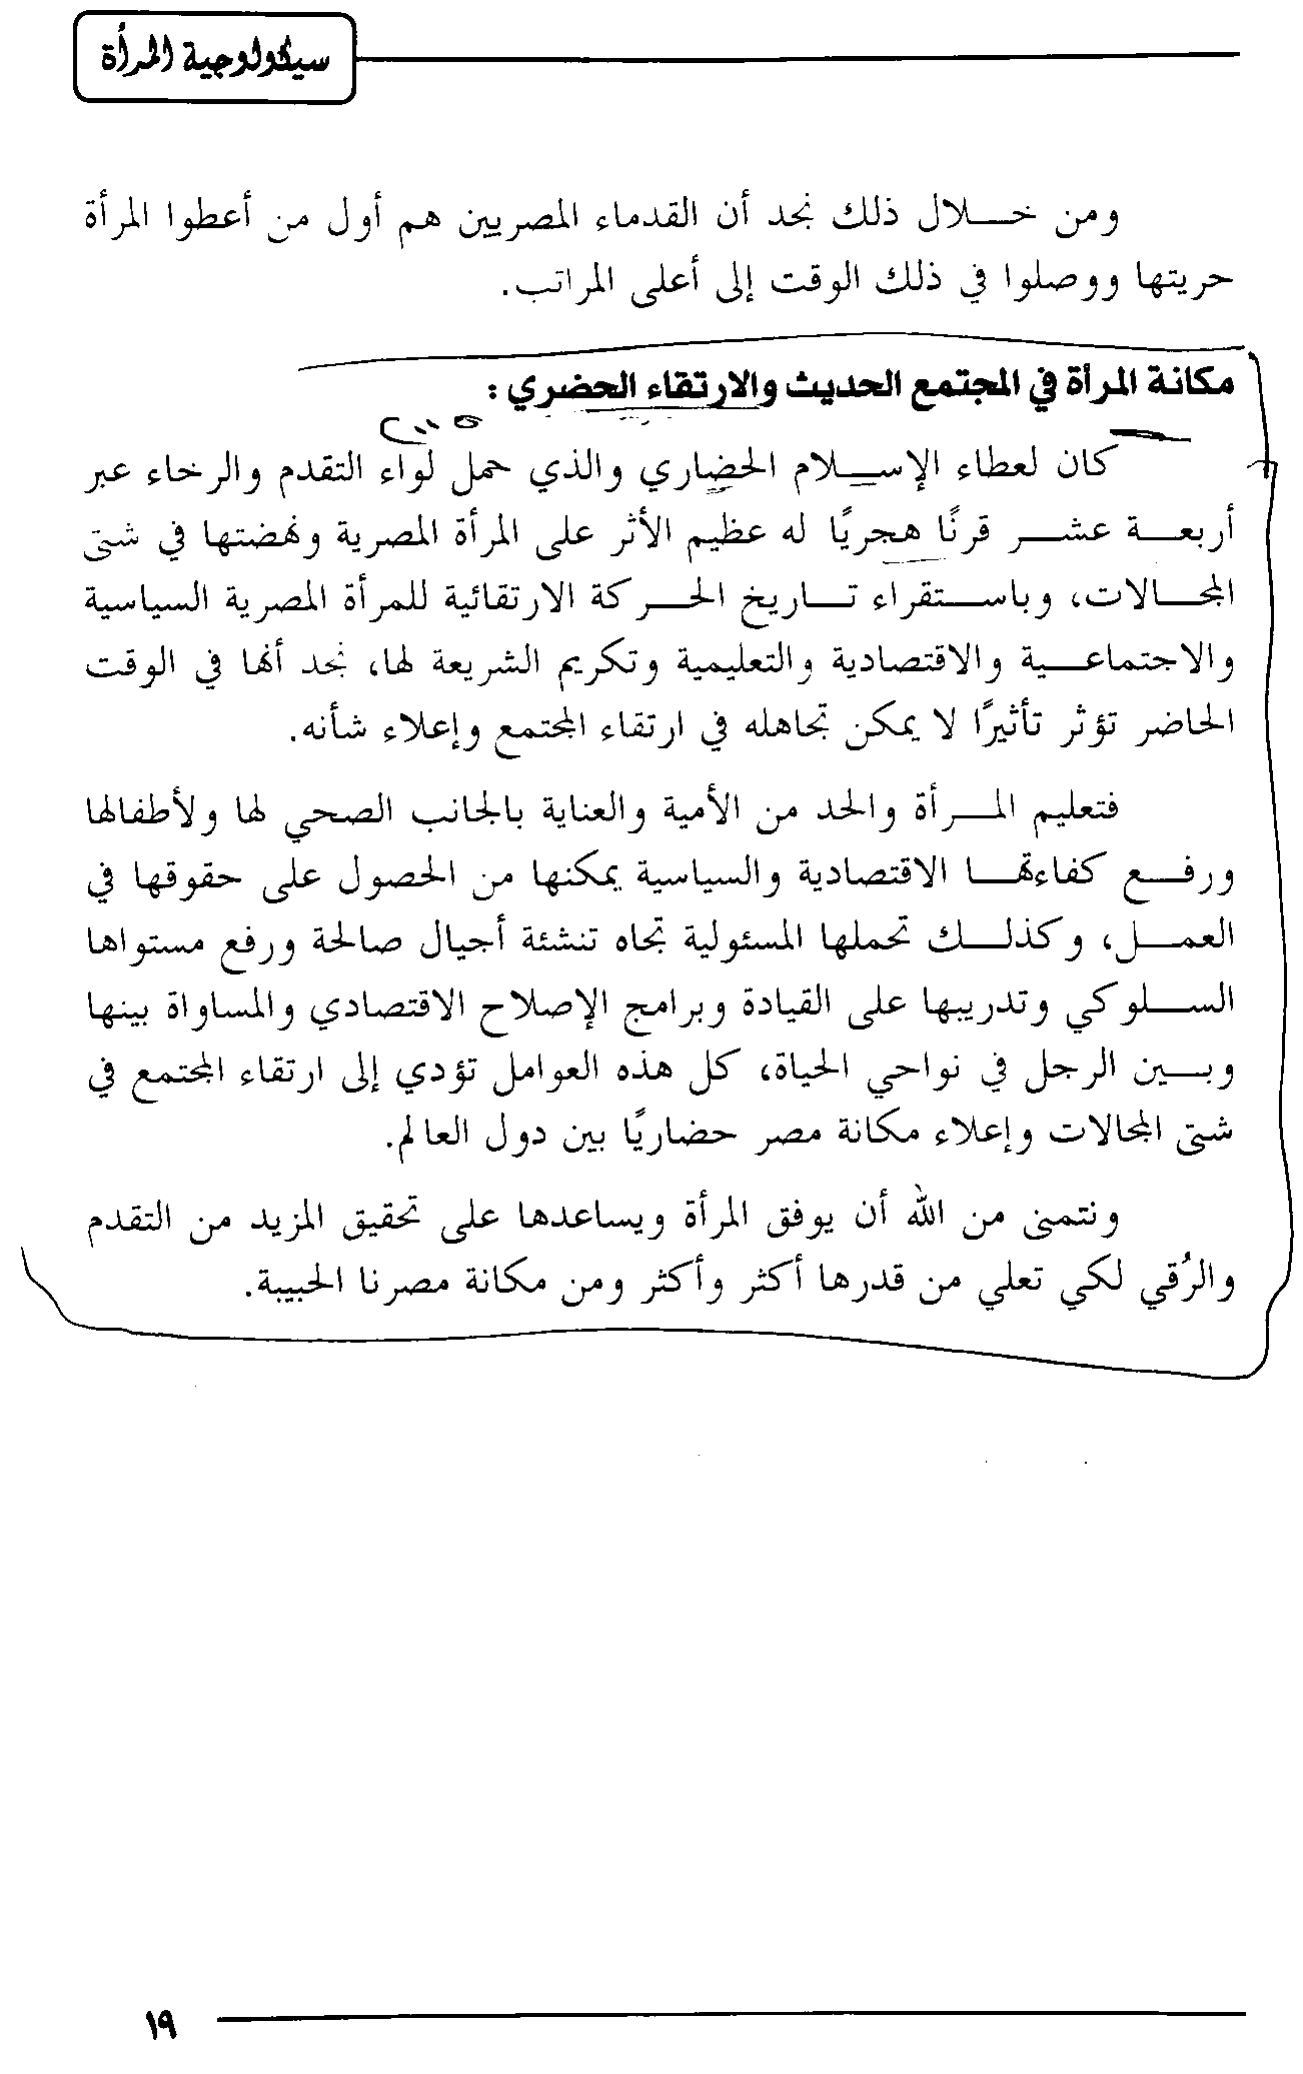 سيكولوجية المرأة
ومن خلال ذلك نجد أن القدماء المصريين هم أول من أعطوا المرأة
حريتها ووصلوا في ذلك الوقت إلى أعلى المراتب.
مكانة المرأة في المجتمع الحديث والارتقاء الحضري :
كان لعطاء الإسلام الحضاري والذي حمل لواء التقدم والرخاء عبر
أربعة عشر قرنًا هجريًا له عظيم الأثر على المرأة المصرية ونهضتها في شتى
المجالات، وباستقراء تاريخ الحركة الارتقائية للمرأة المصرية السياسية
والاجتماعية والاقتصادية والتعليمية وتكريم الشريعة لها، نجد أنها في الوقت
الحاضر تؤثر تأثيرًا لا يمكن تجاهله في ارتقاء المجتمع وإعلاء شأنه.
فتعليم المرأة والحد من الأمية والعناية بالجانب الصحي لها ولأطفالها
ورفع كفاءتها الاقتصادية والسياسية يمكنها من الحصول على حقوقها في
العمل، وكذلك تحملها المسئولية تجاه تنشئة أجيال صالحة ورفع مستواها
السلوكي وتدريبها على القيادة وبرامج الإصلاح الاقتصادي والمساواة بينها
وبين الرجل في نواحي الحياة، كل هذه العوامل تؤدي إلى ارتقاء المجتمع في
شتى المجالات وإعلاء مكانة مصر حضاريًا بين دول العالم.
ونتمنى من الله أن يوفق المرأة ويساعدها على تحقيق المزيد من التقدم
والرُقي لكي تعلي من قدرها أكثر وأكثر ومن مكانة مصرنا الحبيبة.
١٩